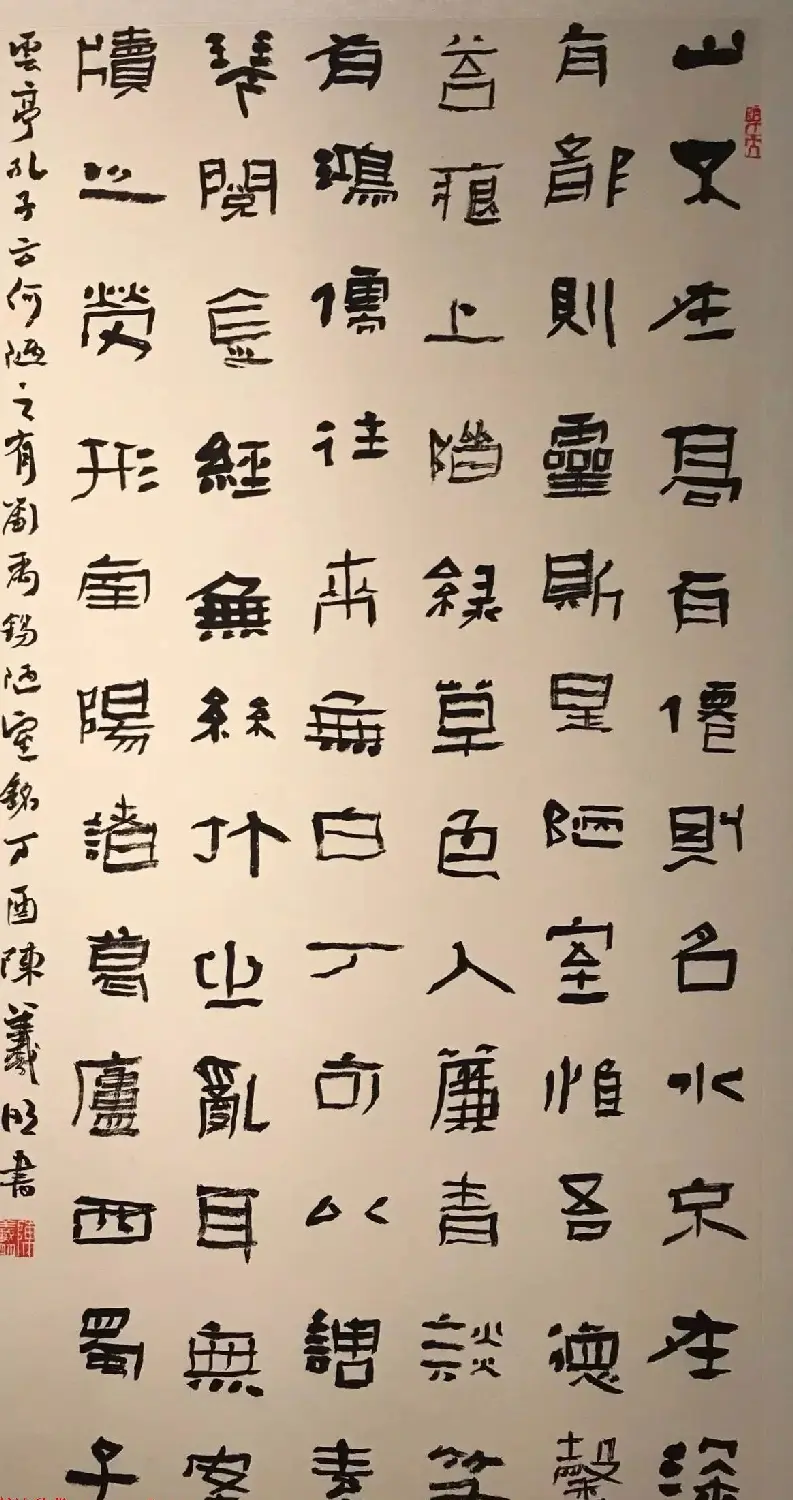 山不在高有僊則名水不在深
有龍則靈斯是陋室惟吾德馨
苔痕上階綠草色入簾青談笑
有鴻儒往來無白丁可以調素
琴閱金經無絲竹之亂耳無案
牘之勞形南陽諸葛廬西蜀子
雲亭孔子云何陋之有劉禹錫陋室銘丁酉陳羲明書